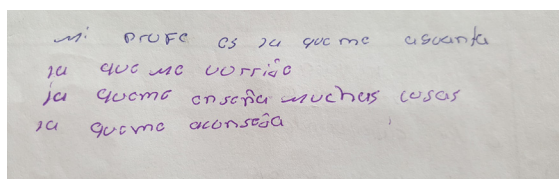 mi profe es la que me aguanta
la que me corrige
la queme enseña muchas cosas
la queme aconseja